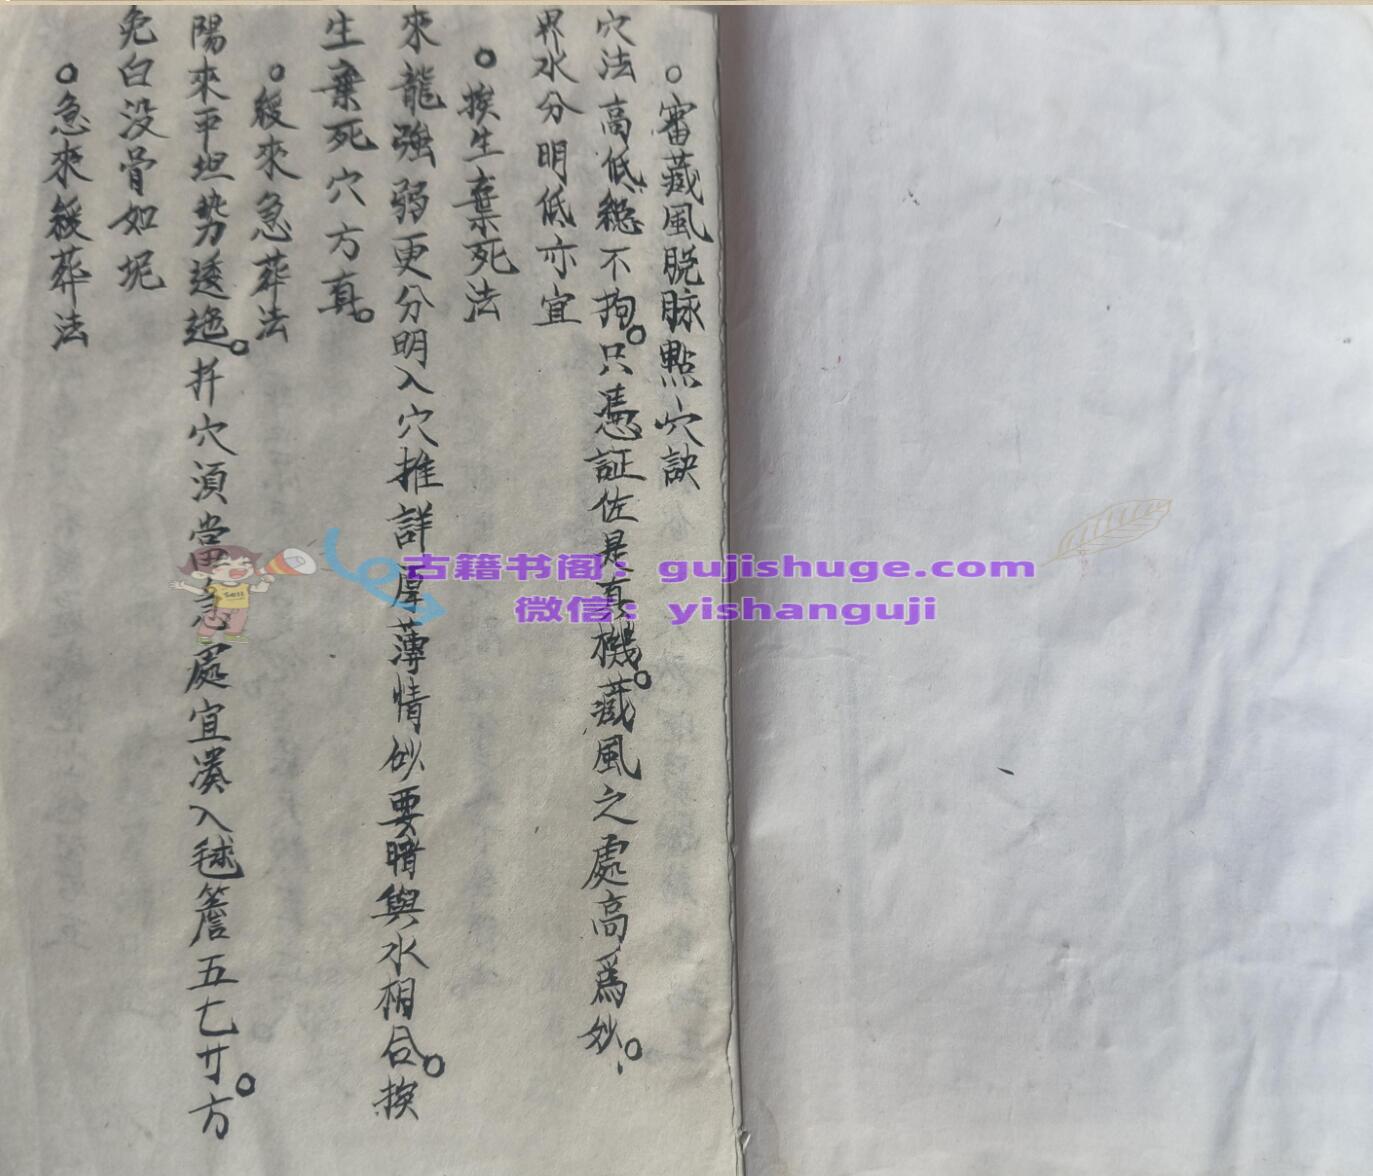 ○審藏風脫脉點穴訣
穴法高低穩不拘。只憑証佐是真機。藏風之處高爲妙。
界水分明低亦宜
○挨生棄死法
來龍強弱更分明入穴推詳厚薄情砂要暗與水相合。挨
生棄死穴方真。
○緩來急葬法
陽來平坦勢逶迤。扦穴湏當急處宜湊入毬簷五七寸。方
免白没骨如坭
○急來緩葬法
古籍书阁：gujishuge.com
微信：yishanguji